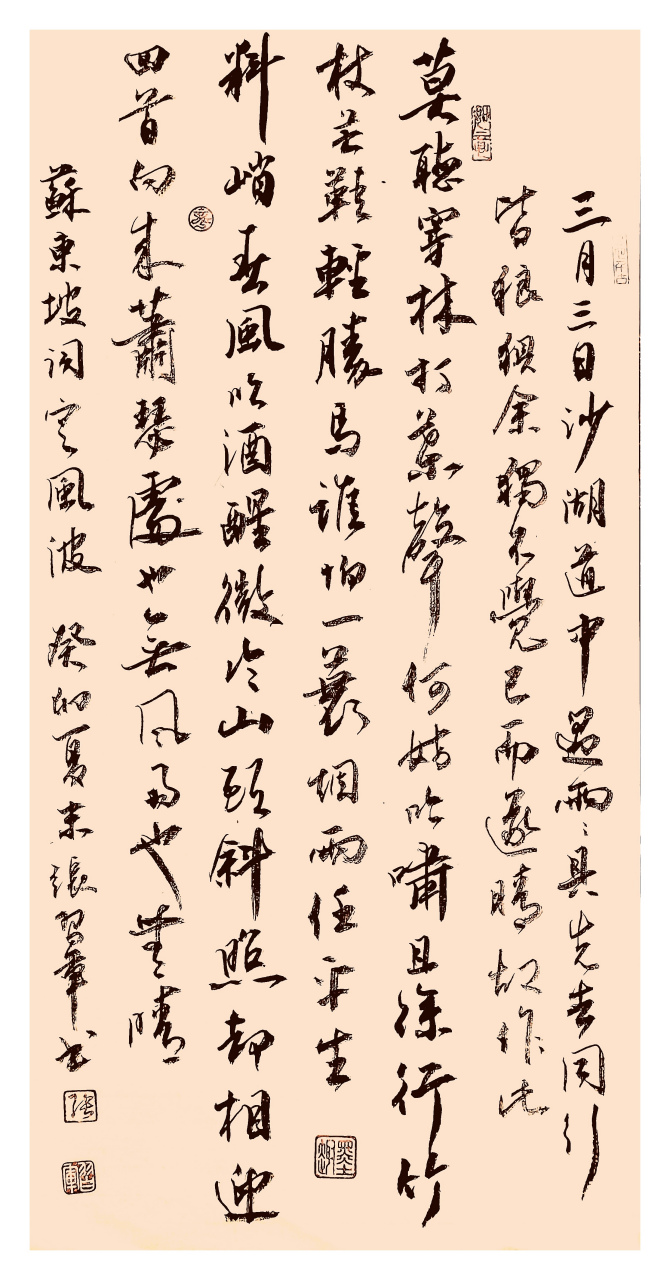 三月三日沙湖道中遇雨〻具先去同引
皆狼狽余獨不覺已而遂晴故作此
莫聽穿林打葉聲何妨吟嘯且徐行竹
杖芒鞋輕勝馬誰怕一蓑烟雨任平生
料峭春風吹酒醒微冷山頭斜照却相迎
回首向来蕭瑟處也無風雨也無晴
蘇東坡詞定風波 癸卯夏末張習軍书